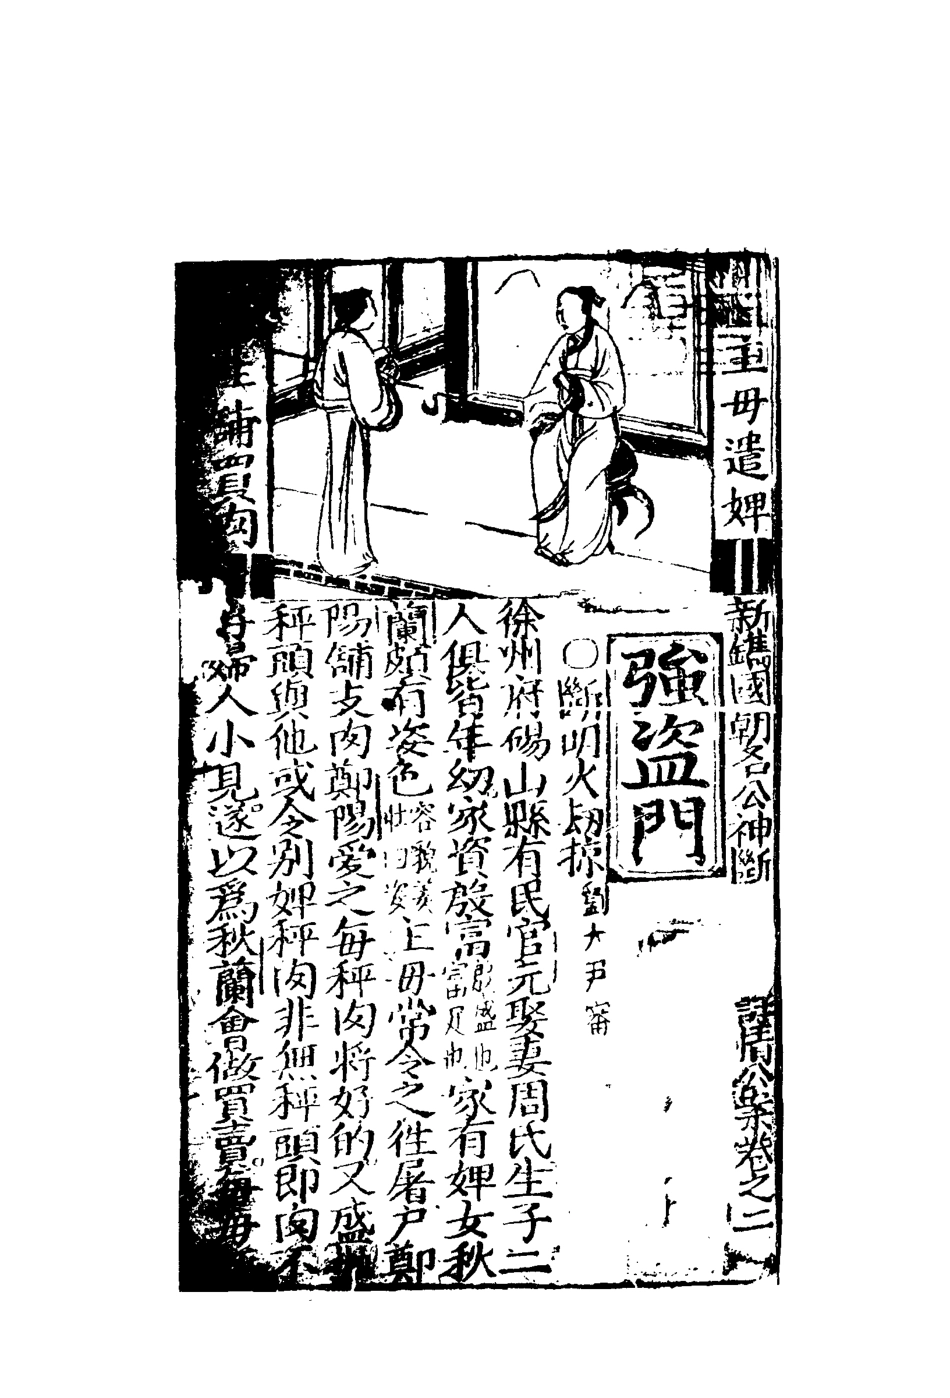 主母遣婢
舖買肉
新鐫國朝名公神斷詳情公案卷之二
強盜門
〇斷明火刼掠 劉大尹審
徐州府碭山縣有民官元娶妻周氏生子二
人俱皆年幼家資殷富殷盛也富足也家有婢女秋
蘭頗有姿色容貌美壯曰姿主母常令之徃屠户鄭
陽舖支肉鄭陽愛之每秤肉將好的又盛
秤頭與他或令别婢秤肉非無秤頭即肉不
婦人小見遂以爲秋蘭會做買賣每每